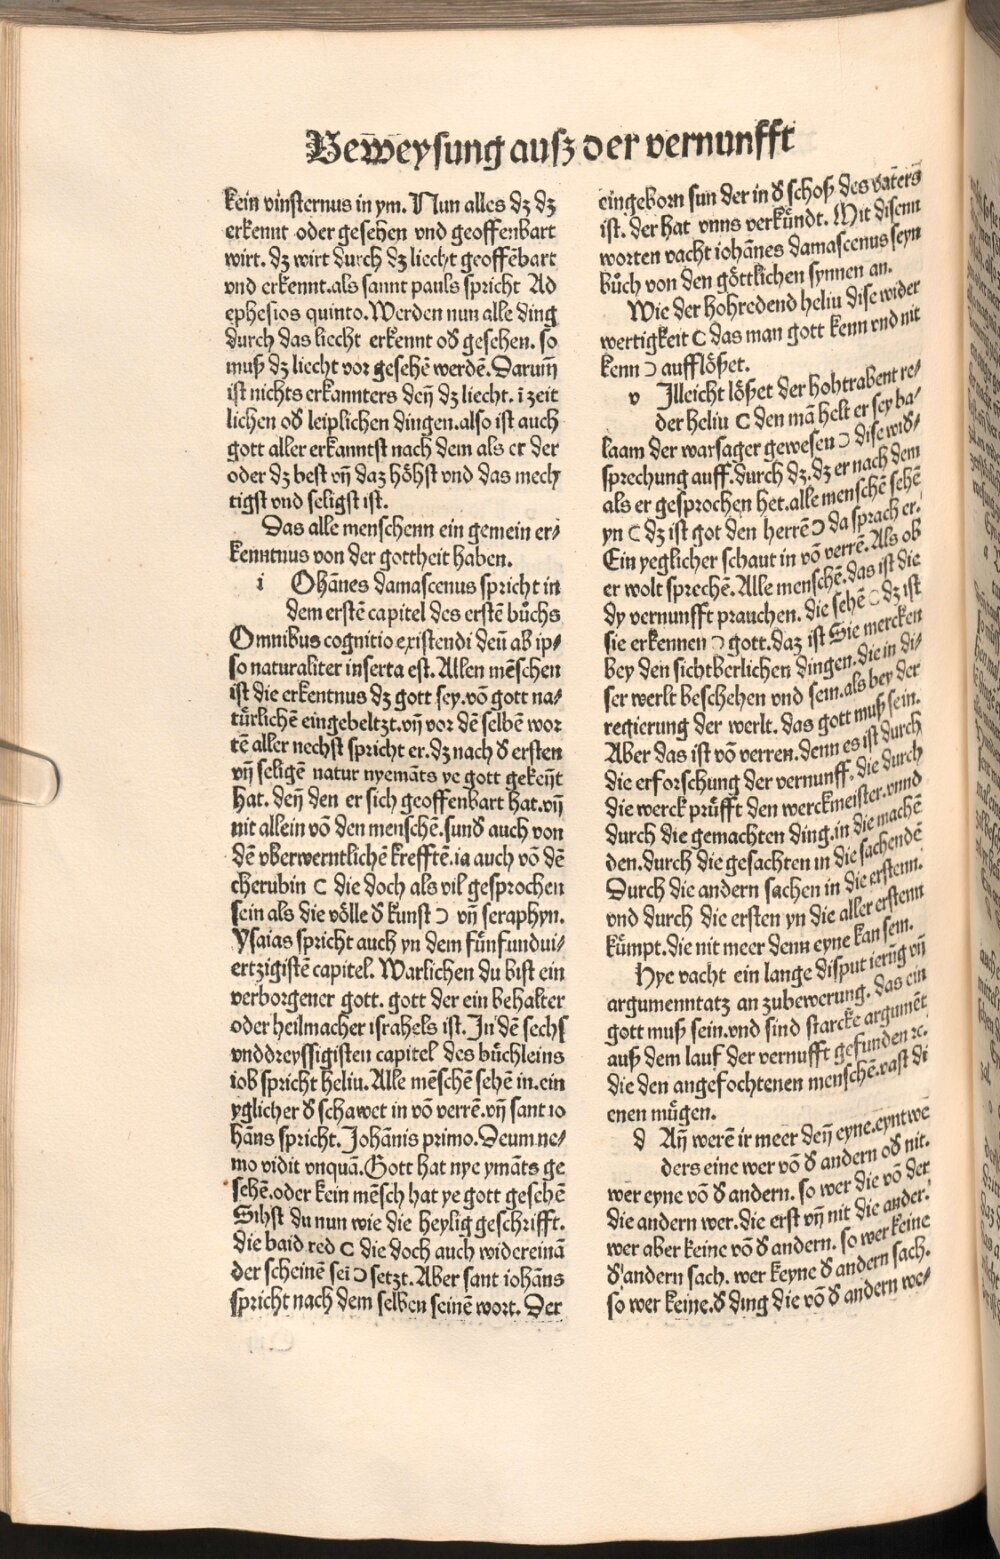 Beweysung ausz der vernunfft
kein vinsternus in ym. Nun alles dz dz
erkennt oder gesehen vnd geoffenbart
wirt. dz wirt durch dz liecht geoffēbart
vnd erkennt.als sannt pauls spricht Ad
ephesios quinto.Werden nun alle ding
durch das liecht erkennt oď gesehen. so
muß dz liecht vor gesehē werdē.Darum̄
ist nichts erkannters den̄ dz liecht. ī zeit
lichen oď leiplichen dingen.also ist auch
gott aller erkanntst nach dem als er der
oder dz best vn̄ daz höhst vnd das mech
tigst vnd seligst ist.
Das alle menschenn ein gemein er⸗
kenntnus von der gottheit haben.
i Ohānes damascenus spricht in
dem erstē capitel des erstē bůchs
Omnibus cognitio existendi deū ab ip⸗
so naturaliter inserta est. Allen mēschen
ist die erkentnus dz gott sey.vō gott na⸗
türlichē eingebeltzt.vn̄ vor dē selbē wor
tē aller nechst spricht er.dz nach ď ersten
vn̄ seligē natur nyemāts ye gott geken̄t
hat. den̄ den er sich geoffenbart hat.vn̄
nit allein vō den menschē.sunď auch von
dē vberwerntlichē krefftē.ia auch vō dē
cherubin ( die doch als vil gesprochen
sein als die völle ď kunst ) vn̄ seraphyn.
Ysaias spricht auch yn dem fünfundui⸗
ertzigistē capitel. Warlichen du bist ein
verborgener gott. gott der ein behalter
oder heilmacher israhels ist. In dē sechs
vnddreyssigisten capitel des bůchleins
iob spricht heliu. Alle mēschē sehē in.ein
yglicher ď schawet in vō verrē.vn̄ sant io
hāns spricht. Johānis primo.Deum ne⸗
mo vidit vnquā.Gott hat nye ymāts ge
sehē.oder kein mēsch hat ye gott gesehē
Sihst du nun wie die heylig geschrifft.
die baid red ( die doch auch widereinā
der scheinē sei ) setzt. Aber sant iohāns
spricht nach dem selben seinē wort. Der
eingeborn sun der in ď schoß des vaters
ist. der hat vnns verkündt. Mit disenn
worten vacht iohānes damascenus seyn
bůch von den göttlichen synnen an.
Wie der hohredend heliu dise wider
wertigkeit ( das man gott kenn vnd nit
kenn ) aufflößet.
v Jlleicht lößet der hohtrabent re⸗
der heliu ( den mā helt er sey ba⸗
laam der warsager gewesen ) dise wiď⸗
sprechung auff.durch dz.dz er nach dem
als er gesprochen het.alle menschē sehē
yn ( dz ist got den herrē ) da sprach er.
Ein yeglicher schaut in vō verrē. Als ob
er wolt sprechē. Alle menschē.das ist die
dy vernunfft prauchen. die sehē ( dz ist
sie erkennen ) gott.daz ist Sie mercken
bey den sichtberlichen dingen.die in di⸗
ser werlt beschehen vnd sein.als bey der
regierung der werlt. das gott muß sein.
Aber das ist vō verren.denn es ist durch
die erforschung der vernunff, die durch
die werck prüfft den werckmeister.vnnd
durch die gemachten ding.in die machē
den.durch die gesachten in die sachendē
Durch die andern sachen in die erstenn.
vnd durch die ersten yn die aller erstenn
kümpt.die nit meer denn eyne kan sein.
Hye vacht ein lange disput ierūg vn̄
argumenntatz an zubewerung. das ein
gott muß sein.vnd sind starcke argumēt
auß dem lauf der vernufft gefunden ꝛc.
die den angefochtenen menschē.vast di
enen mügen.
d An̄ werē ir meer den̄ eyne.eyntwe
ders eine wer vō ď andern oď nit.
wer eyne vō ď andern. so wer die vō der
die andern wer.die erst vn̄ nit die ander.
wer aber keine vō ď andern. so wer keine
ď andern sach. wer keyne ď andern sach.
so wer keine.ď ding die vō ď andern we⸗